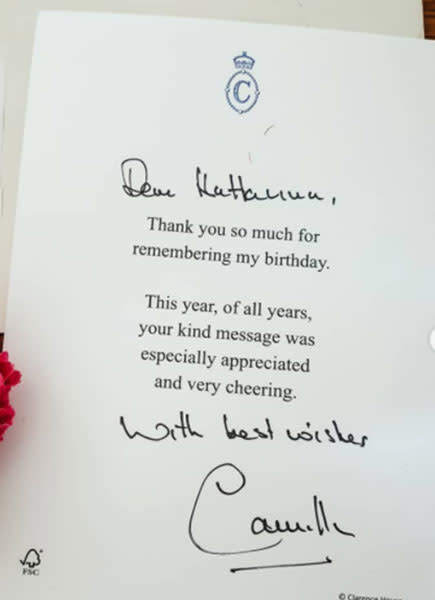 C
Dear Katharina,
Thank you so much for
remembering my birthday.
This year, of all years,
your kind message was
especially appreciated
and very cheering.
With best wishes
Camilla
FSC
© Clarence